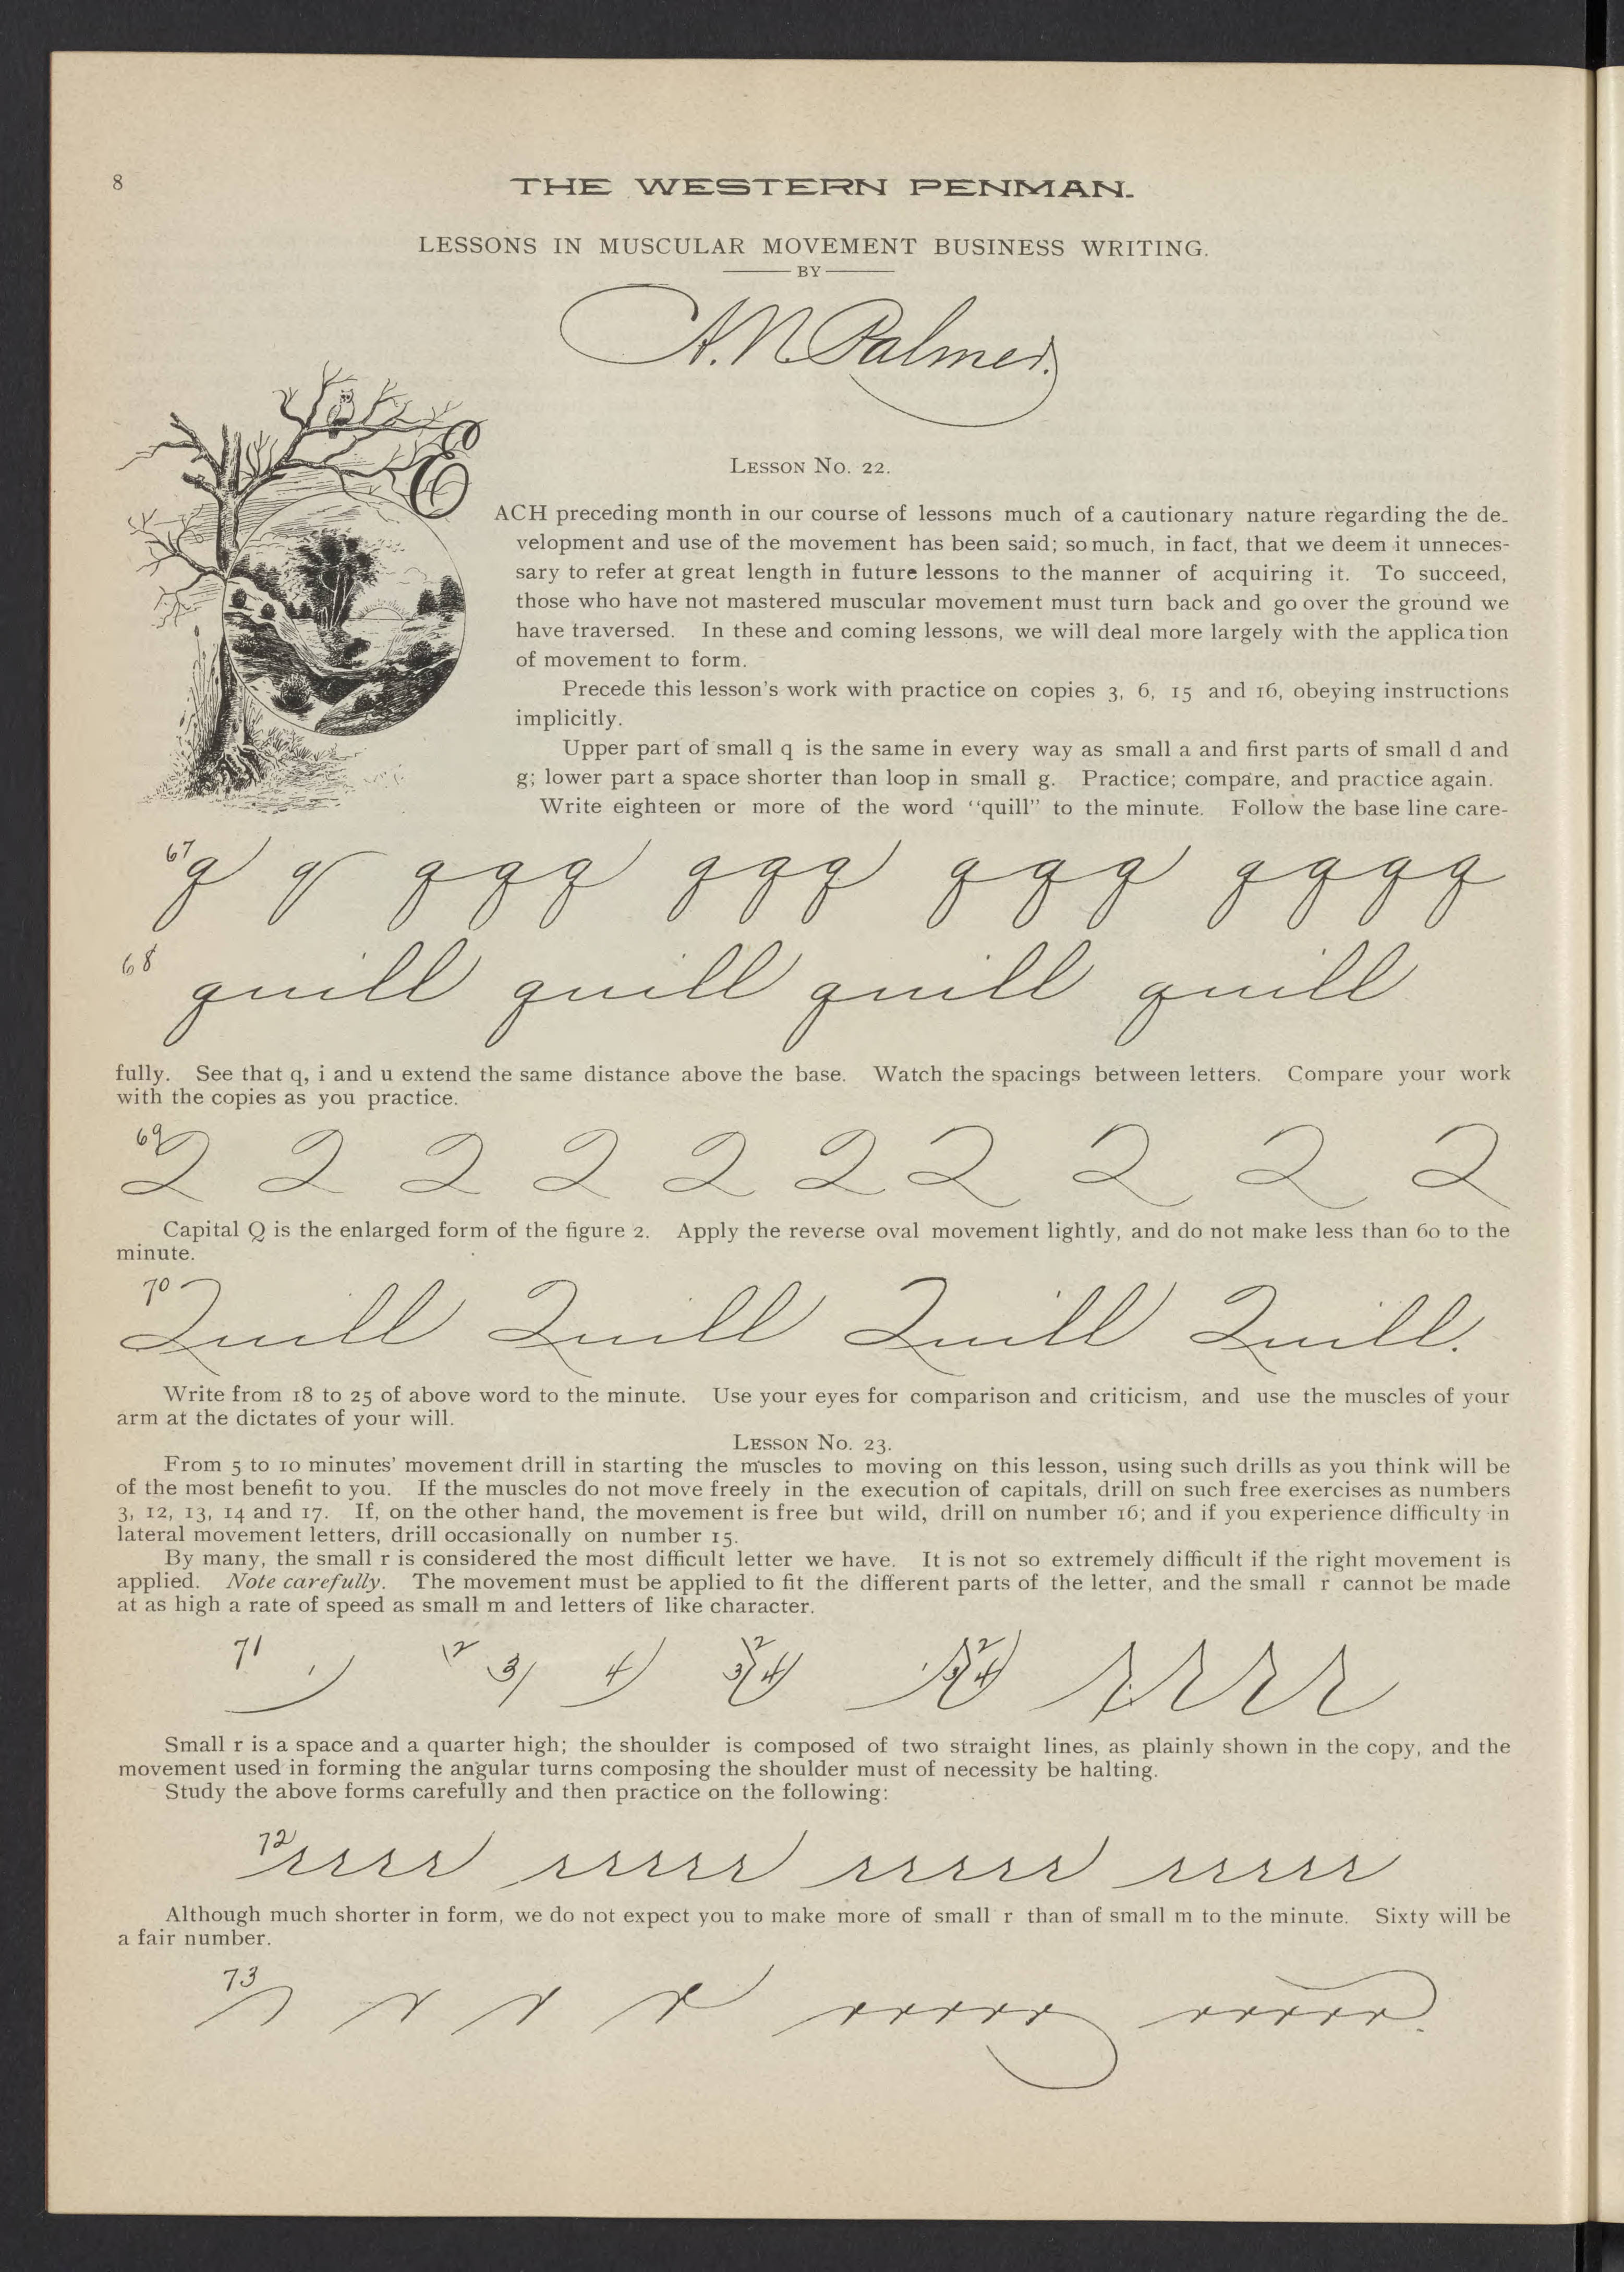 8
THE WESTERN PENMAN.
LESSONS IN MUSCULAR MOVEMENT BUSINESS WRITING.
BY
A. N. Palmer.
LESSON NO. 22.
EACH preceding month in our course of lessons much of a cautionary nature regarding the de-
velopment and use of the movement has been said; so much, in fact, that we deem it unneces-
sary to refer at great length in future lessons to the manner of acquiring it. To succeed,
those who have not mastered muscular movement must turn back and go over the ground we
have traversed. In these and coming lessons, we will deal more largely with the application
of movement to form.
Precede this lesson's work with practice on copies 3, 6, 15 and 16, obeying instructions
implicitly.
Upper part of small q is the same in every way as small a and first parts of small d and
g; lower part a space shorter than loop in small g. Practice; compare, and practice again.
Write eighteen or more of the word "quill" to the minute. Follow the base line care-
67 q q q q q q q q q q q q q q q
68 quill quill quill quill
fully. See that q, i and u extend the same distance above the base. Watch the spacings between letters. Compare your work
with the copies as you practice.
69 2 2 2 2 2 2 2 2 2 2
Capital Q is the enlarged form of the figure 2. Apply the reverse oval movement lightly, and do not make less than 60 to the
minute.
70 Quill Quill Quill Quill.
Write from 18 to 25 of above word to the minute. Use your eyes for comparison and criticism, and use the muscles of your
arm at the dictates of your will.
LESSON NO. 23.
From 5 to 10 minutes' movement drill in starting the muscles to moving on this lesson, using such drills as you think will be
of the most benefit to you. If the muscles do not move freely in the execution of capitals, drill on such free exercises as numbers
3, 12, 13, 14 and 17. If, on the other hand, the movement is free but wild, drill on number 16; and if you experience difficulty in
lateral movement letters, drill occasionally on number 15.
By many, the small r is considered the most difficult letter we have. It is not so extremely difficult if the right movement is
applied. Note carefully. The movement must be applied to fit the different parts of the letter, and the small r cannot be made
at as high a rate of speed as small m and letters of like character.
71 1 2 3 4 2 3 4 1 2 3 4 r r r r
Small r is a space and a quarter high; the shoulder is composed of two straight lines, as plainly shown in the copy, and the
movement used in forming the angular turns composing the shoulder must of necessity be halting.
Study the above forms carefully and then practice on the following:
72 rrrr rrrrr rrrrr rrrrr
Although much shorter in form, we do not expect you to make more of small r than of small m to the minute. Sixty will be
a fair number.
73 r r r r rrrrr rrrrr